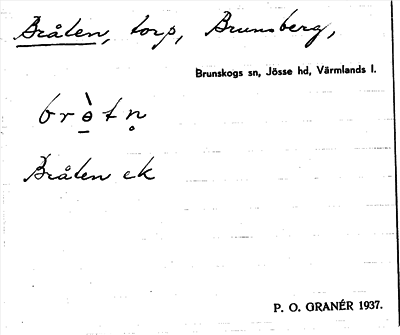 Bråten, torp, Brunsberg,
Brunskogs sn, Jösse hd, Värmlands l.
brɵ̀tn̥
Bråten ek
P. O. GRANÉR 1937.